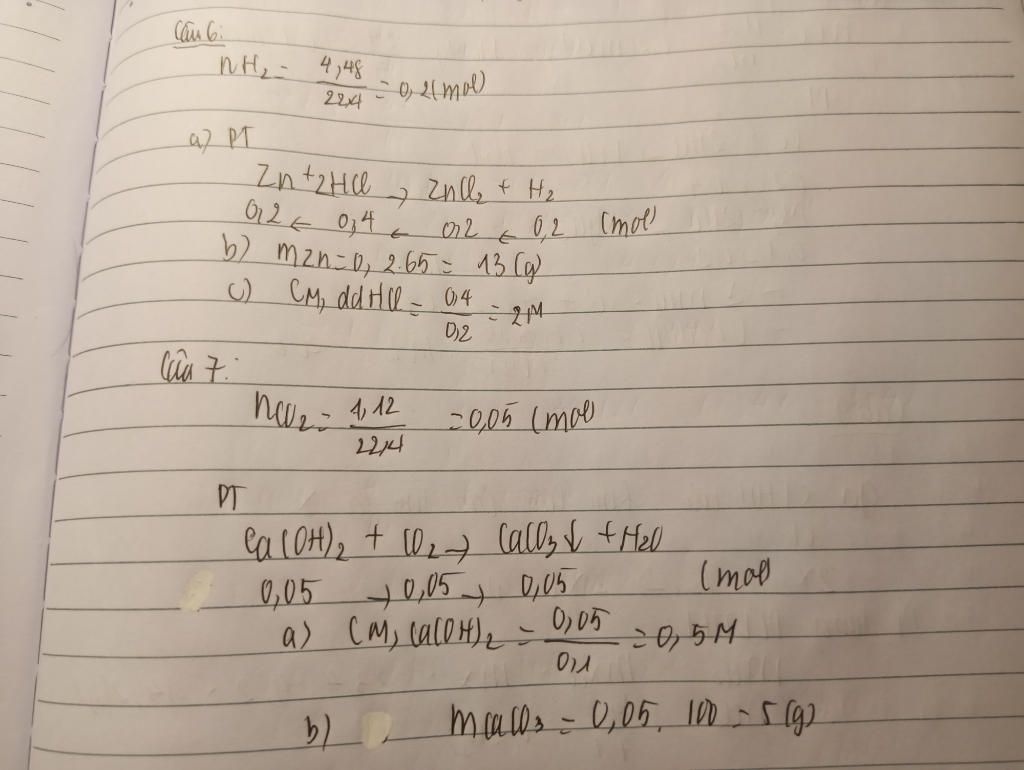 Câu 6:
nH₂ = 4,48/22,4 = 0,2 (mol)
a) PT
Zn + 2HCl → ZnCl₂ + H₂
0,2 ← 0,4 ← 0,2 ← 0,2 (mol)
b) mZn = 0,2.65 = 13 (g)
c) CM, ddHCl = 0,4/0,2 = 2M
Câu 7:
nCO₂ = 1,12/22,4 = 0,05 (mol)
PT
Ca(OH)₂ + CO₂ → CaCO₃↓ + H₂O
0,05 → 0,05 → 0,05 (mol)
a) CM, Ca(OH)₂ = 0,05/0,1 = 0,5M
b) mCaCO₃ = 0,05. 100 = 5 (g)